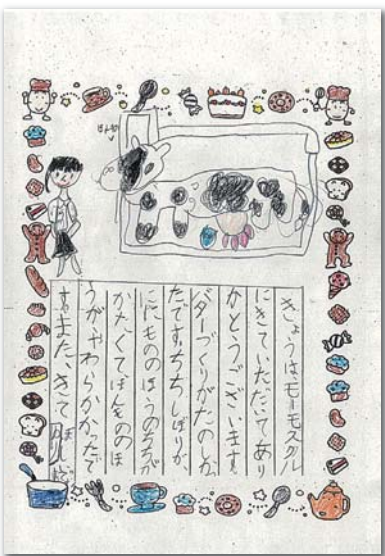 きょうは、モーモスクル
にきていただいてあり
がとうございます。
バターづくりがたのしか
たです。ちちしぼりが、
にせもののほうのちちが
かたくて、ほんもののほ
うが、やわらかかったで
す。またきて